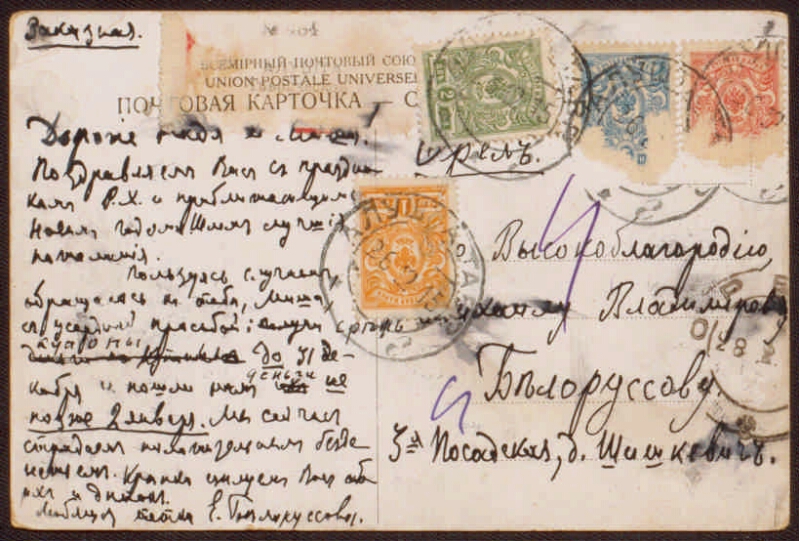 Заказная.
№ 804
ВСЕМІРНЫЙ ПОЧТОВЫЙ СОЮ
UNION POSTALE UNIVERSE
ПОЧТОВАЯ КАРТОЧКА — С
Дорогіе
Поздравляемъ Васъ съ праздни
комъ Р.Х. и приближающимся
Новымъ годомъ. Шлемъ лучшія
пожеланія.
Пользуясь случаемъ,
обращаюсь къ тебѣ, Миша,
съ усердной просьбой: получи
купоны
до 31 де-
кабря и пошли намъ деньги не
позже 2 января. Мы сейчасъ
страдаемъ безде-
нежьемъ. Крѣпко цѣлуемъ Васъ обо
ихъ и дѣтокъ.
Любящая тетка Е. Бѣлоруссова.
Орелъ.
Высокоблагородію,
Владиміров
Бѣлоруссову.
3я Посадская, д. Шишкевичъ.
2 КОП
АЛУШТА ТАВР
28 12 15
28